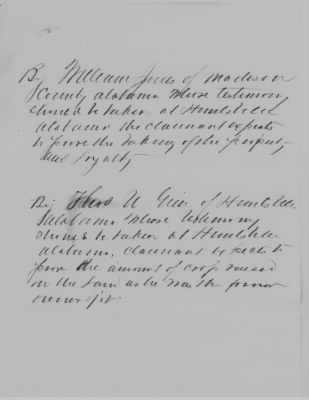 By William Jones of Madison
County Alabama whose testimony
desired to be taken at Huntsville
Alabama the claimant expects
to prove the taking of the property
and loyalty
By Thos U of Huntsville
Alabama whose testimony
desired to be taken at Huntsville
Alabama, claimant expects to
prove the amount of crop raised
on the land as he was the
owner of it